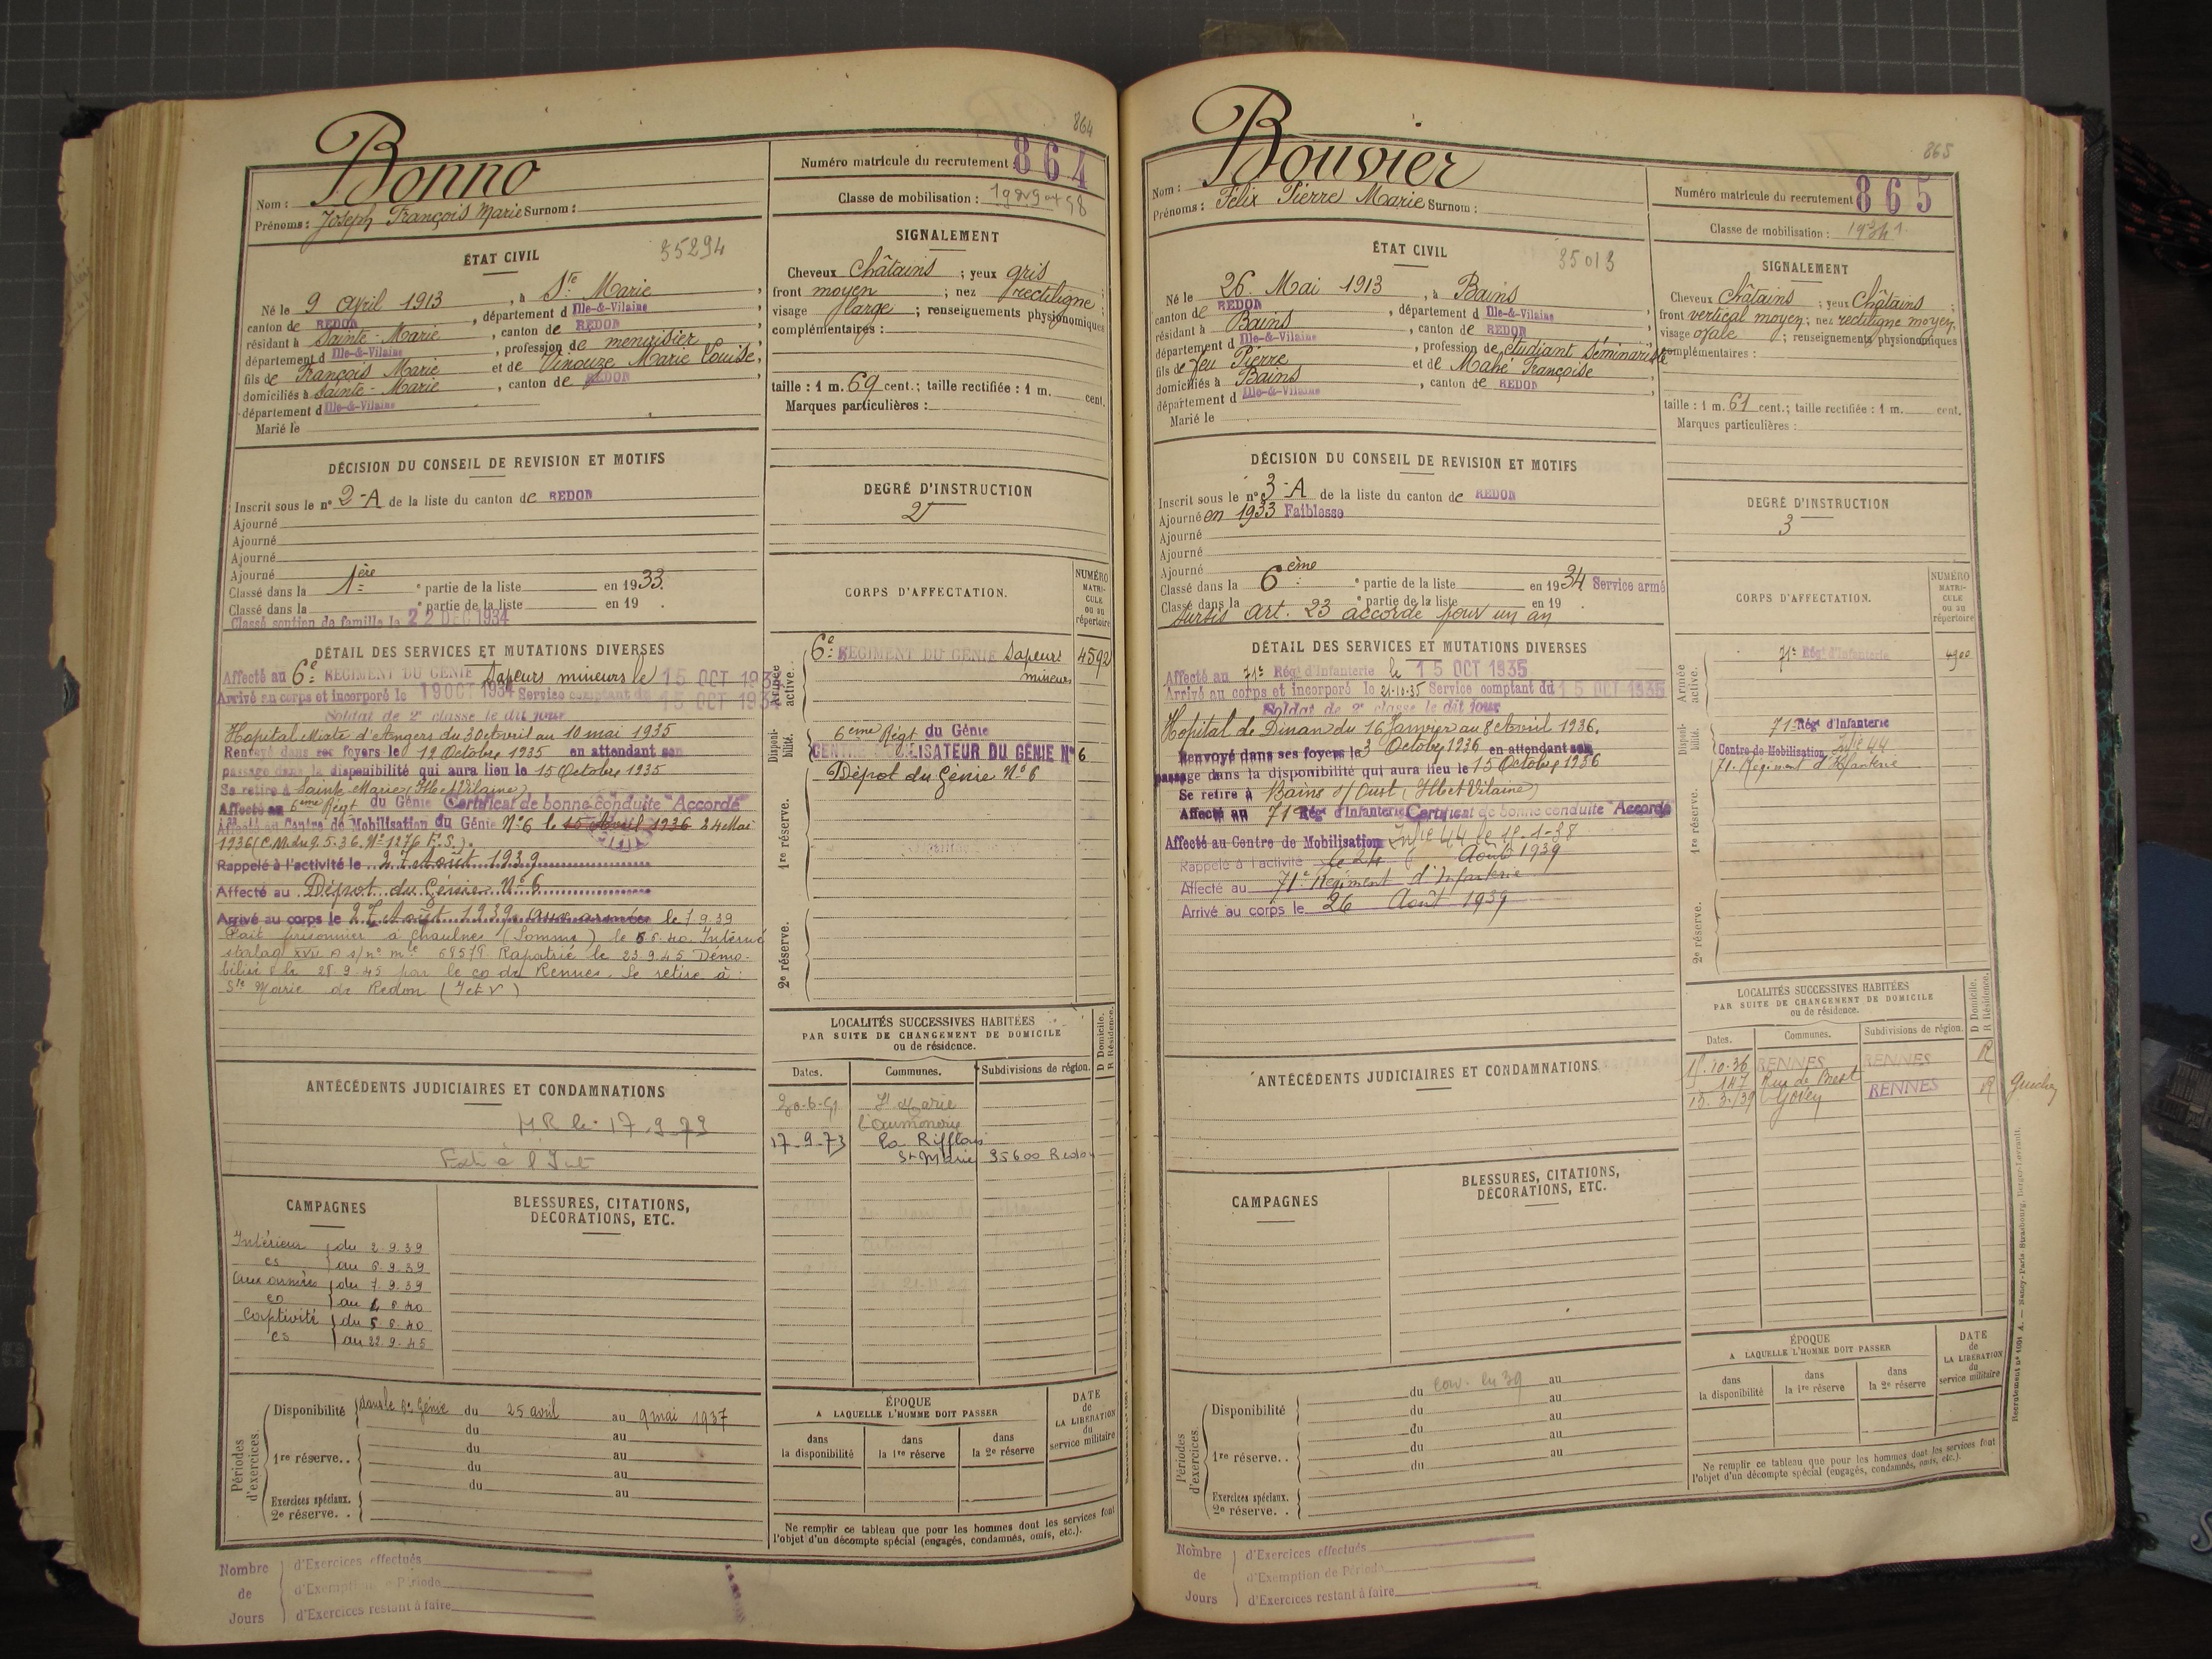 864
Bonno
Nom :
Prénoms : Joseph François Marie Surnom :
Numéro matricule du recrutement 864
Classe de mobilisation :
ÉTAT CIVIL
35294
Né le 9 avril 1913, à Ste Marie,
canton de REDON, département d Ille-&-Vilaine
résidant à Sainte-Marie, canton de REDON,
département d Ille-&-Vilaine, profession de menuisier
fils de François Marie et de Vinouze Marie Louise,
domiciliés à Sainte-Marie, canton de REDON,
département d Ille-&-Vilaine
Marié le
SIGNALEMENT
Cheveux Châtains ; yeux gris
front moyen ; nez rectiligne ;
visage large ; renseignements physionomiques
complémentaires :
taille : 1 m. 69 cent.; taille rectifiée : 1 m. cent.
Marques particulières :
DÉCISION DU CONSEIL DE REVISION ET MOTIFS
Inscrit sous le n° 2-A de la liste du canton de REDON
Ajourné
Ajourné
Ajourné
Ajourné
Classé dans la 1ère ° partie de la liste en 1933.
Classé dans la ° partie de la liste en 19 .
Classé soutien de famille le 22 DEC 1934
DEGRÉ D'INSTRUCTION
2
CORPS D'AFFECTATION.
NUMÉRO MATRICULE ou au répertoire
Armée active.
6e REGIMENT DU GENIE Sapeurs mineurs 4592
Disponibilité.
6ème Régt du Génie
CENTRE MOBILISATEUR DU GÉNIE N° 6
Dépot du Génie N° 6
1re réserve.
2e réserve.
DÉTAIL DES SERVICES ET MUTATIONS DIVERSES
Affecté au 6e REGIMENT DU GENIE Sapeurs mineurs le 15 OCT 1934
Arrivé au corps et incorporé le 19 OCT 1934 Service comptant du 15 OCT 1934
Soldat de 2e classe le dit jour
Hopital Mixte d'Angers du 30 avril au 10 mai 1935
Renvoyé dans ses foyers le 12 Octobre 1935 en attendant son
passage dans la disponibilité qui aura lieu le 15 Octobre 1935
Se retire à Sainte Marie (Ille et Vilaine)
Affecté au 6ème Régt du Génie Certificat de bonne conduite "Accordé"
Affecté au Centre de Mobilisation du Génie N° 6 le 15 Avril 1936 24 Mai
1936 (C.M. du 9.5.36. N° 1276 E.S.).
Rappelé à l'activité le 27 Août 1939
Affecté au Dépot du Génie N° 6
Arrivé au corps le 27 Août 1939. Aux armées le 7.9.39
Fait prisonnier à Chaulnes (Somme) le 5.6.40. Interné
stalag XVII A s/ n° mle 68579 Rapatrié le 23.9.45 Démo-
bilisé le 28.9.45 par le CD de Rennes. Se retire à :
Ste Marie de Redon (I et V)
LOCALITÉS SUCCESSIVES HABITÉES
PAR SUITE DE CHANGEMENT DE DOMICILE
ou de résidence.
Dates. Communes. Subdivisions de région. D Domicile. R Résidence.
St Marie
l'Aumonerie
17-9-73 La Rifflais
St Marie 35600 Redon
ANTÉCÉDENTS JUDICIAIRES ET CONDAMNATIONS
CAMPAGNES
Intérieur du 2.9.39
cs au 6.9.39
Aux armées du 7.9.39
cs au 4.6.40
Captivité du 5.6.40
cs au 22.9.45
BLESSURES, CITATIONS, DÉCORATIONS, ETC.
Périodes d'exercices.
Disponibilité dans le 6e Génie du 25 avril au 9 mai 1937
du au
1re réserve.. du au
du au
du au
Exercices spéciaux.
2e réserve. .
ÉPOQUE
A LAQUELLE L'HOMME DOIT PASSER
dans la disponibilité
dans la 1re réserve
dans la 2e réserve
DATE de LA LIBÉRATION du service militaire
Ne remplir ce tableau que pour les hommes dont les services font
l'objet d'un décompte spécial (engagés, condamnés, omis, etc.).
Nombre de Jours
d'Exercices effectués
d'Exemption de Période
d'Exercices restant à faire
865
Bouvier
Nom :
Prénoms : Félix Pierre Marie Surnom :
Numéro matricule du recrutement 865
Classe de mobilisation :
ÉTAT CIVIL
35013
Né le 26 Mai 1913, à Bains
canton de REDON, département d Ille-&-Vilaine,
résidant à Bains, canton de REDON,
département d Ille-&-Vilaine, profession de étudiant Séminariste
fils de feu Pierre et de Mahé Françoise
domiciliés à Bains, canton de REDON,
département d Ille-&-Vilaine
Marié le
SIGNALEMENT
Cheveux Châtains ; yeux Châtains ;
front vertical moyen; nez rectiligne moyen,
visage ovale ; renseignements physionomiques
complémentaires :
taille : 1 m. 61 cent.; taille rectifiée : 1 m. cent.
Marques particulières :
DÉCISION DU CONSEIL DE REVISION ET MOTIFS
Inscrit sous le n° 3-A de la liste du canton de REDON
Ajourné en 1933 Faiblesse
Ajourné
Ajourné
Ajourné
Classé dans la 6ème ° partie de la liste en 1934 Service armé
Classé dans la ° partie de la liste en 19 .
Sursis art. 23 accordé pour un an
DEGRÉ D'INSTRUCTION
3
CORPS D'AFFECTATION.
NUMÉRO MATRICULE ou au répertoire
Armée active.
71e Régt d'Infanterie
Disponibilité.
71e Régt d'Infanterie
Centre de Mobilisation Infie 44
71e Régiment d'Infanterie
1re réserve.
2e réserve.
DÉTAIL DES SERVICES ET MUTATIONS DIVERSES
Affecté au 71e Régt d'Infanterie le 15 OCT 1935
Arrivé au corps et incorporé le 21-10-35 Service comptant du 15 OCT 1935
Soldat de 2e classe le dit jour
Hopital de Dinan du 16 Janvier au 8 Avril 1936.
Renvoyé dans ses foyers le 3 Octobre 1936 en attendant son
passage dans la disponibilité qui aura lieu le 15 Octobre 1936
Se retire à Bains s/ Oust (Ille et Vilaine)
Affecté au 71e Régt d'Infanterie Certificat de bonne conduite "Accordé
Affecté au Centre de Mobilisation Infie 44 le 15-1-38
Rappelé à l'activité le 24 Août 1939
Affecté au 71e Régiment d'Infanterie
Arrivé au corps le 26 Août 1939
LOCALITÉS SUCCESSIVES HABITÉES
PAR SUITE DE CHANGEMENT DE DOMICILE
ou de résidence.
Dates. Communes. Subdivisions de région. D Domicile. R Résidence.
15.10.36 RENNES RENNES R
147 Rue de Brest
RENNES R
ANTÉCÉDENTS JUDICIAIRES ET CONDAMNATIONS
CAMPAGNES
BLESSURES, CITATIONS, DÉCORATIONS, ETC.
Périodes d'exercices.
Disponibilité du au
du au
du au
1re réserve. . du au
du au
Exercices spéciaux.
2e réserve. .
ÉPOQUE
A LAQUELLE L'HOMME DOIT PASSER
dans la disponibilité
dans la 1re réserve
dans la 2e réserve
DATE de LA LIBÉRATION du service militaire
Ne remplir ce tableau que pour les hommes dont les services font
l'objet d'un décompte spécial (engagés, condamnés, omis, etc.).
Recrutement n° 1091 A. — Nancy-Paris-Strasbourg, Berger-Levrault.
Nombre de Jours
d'Exercices effectués
d'Exemption de Période
d'Exercices restant à faire